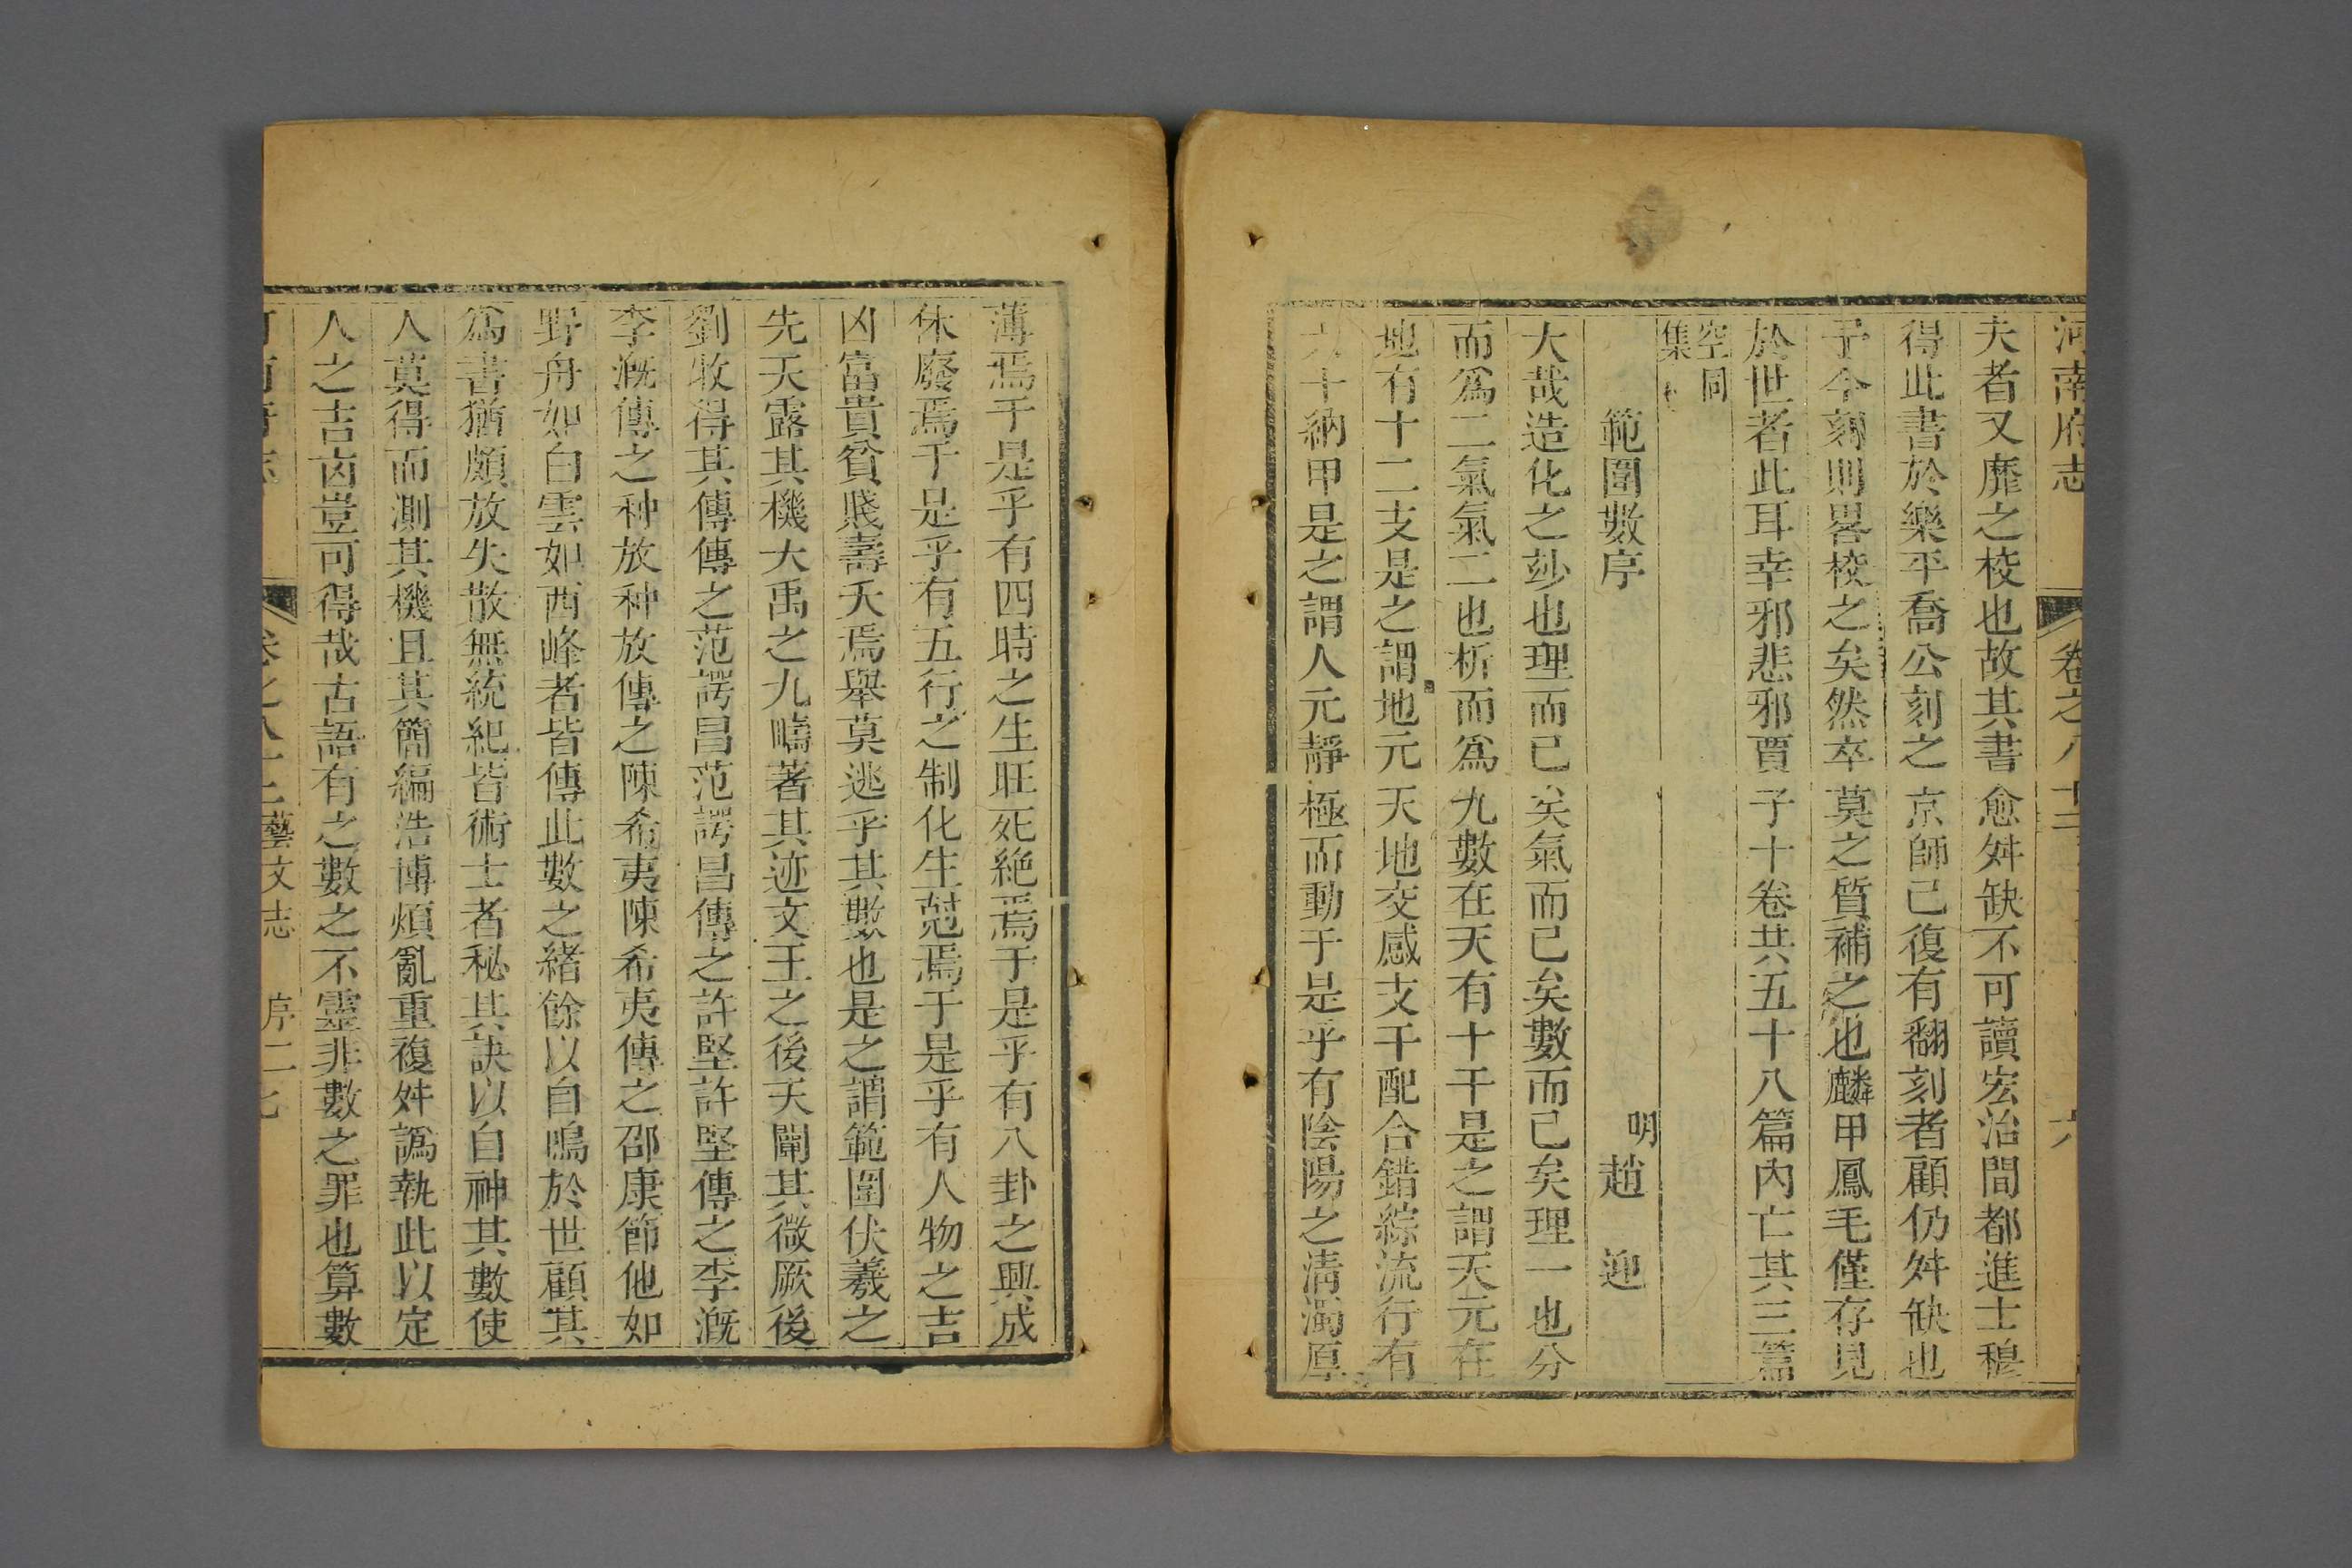 河南府志 卷之八十三 六
夫者又靡之校也故其書愈舛缺不可讀宏治間都進士穆
得此書於樂平喬公刻之京師已復有翻刻者顧仍舛缺也
予今刻則畧校之矣然卒莫之質補之也麟甲鳳毛僅存見
於世者此耳幸邪悲邪賈子十卷共五十八篇內亡其三篇
空同集
範圍數序 明趙 迎
大哉造化之玅也理而已矣氣而已矣數而已矣理一也分
而爲二氣氣二也析而爲九數在天有十干是之謂天元在
地有十二支是之謂地元天地交感支干配合錯綜流行有
六十納甲是之謂人元靜極而動于是乎有陰陽之淸濁厚
薄焉于是乎有四時之生旺死絶焉于是乎有八卦之興成
休廢焉于是乎有五行之制化生尅焉于是乎有人物之吉
凶富貴貧賤壽夭焉舉莫逃乎其數也是之謂範圍伏羲之
先天露其機大禹之九疇著其迹文王之後天闡其微厥後
劉牧得其傳傳之范諤昌范諤昌傳之許堅許堅傳之李溉
李溉傳之种放种放傳之陳希夷陳希夷傳之邵康節他如
野舟如白雲如西峰者皆傳此數之緖餘以自鳴於世顧其
爲書猶頗放失散無統紀皆術士者秘其訣以自神其數使
人莫得而測其機且其簡編浩博煩亂重複舛譌執此以定
人之吉㐫豈可得哉古語有之數之不靈非數之罪也算數
河南府志 卷之八十三藝文志 序二 七